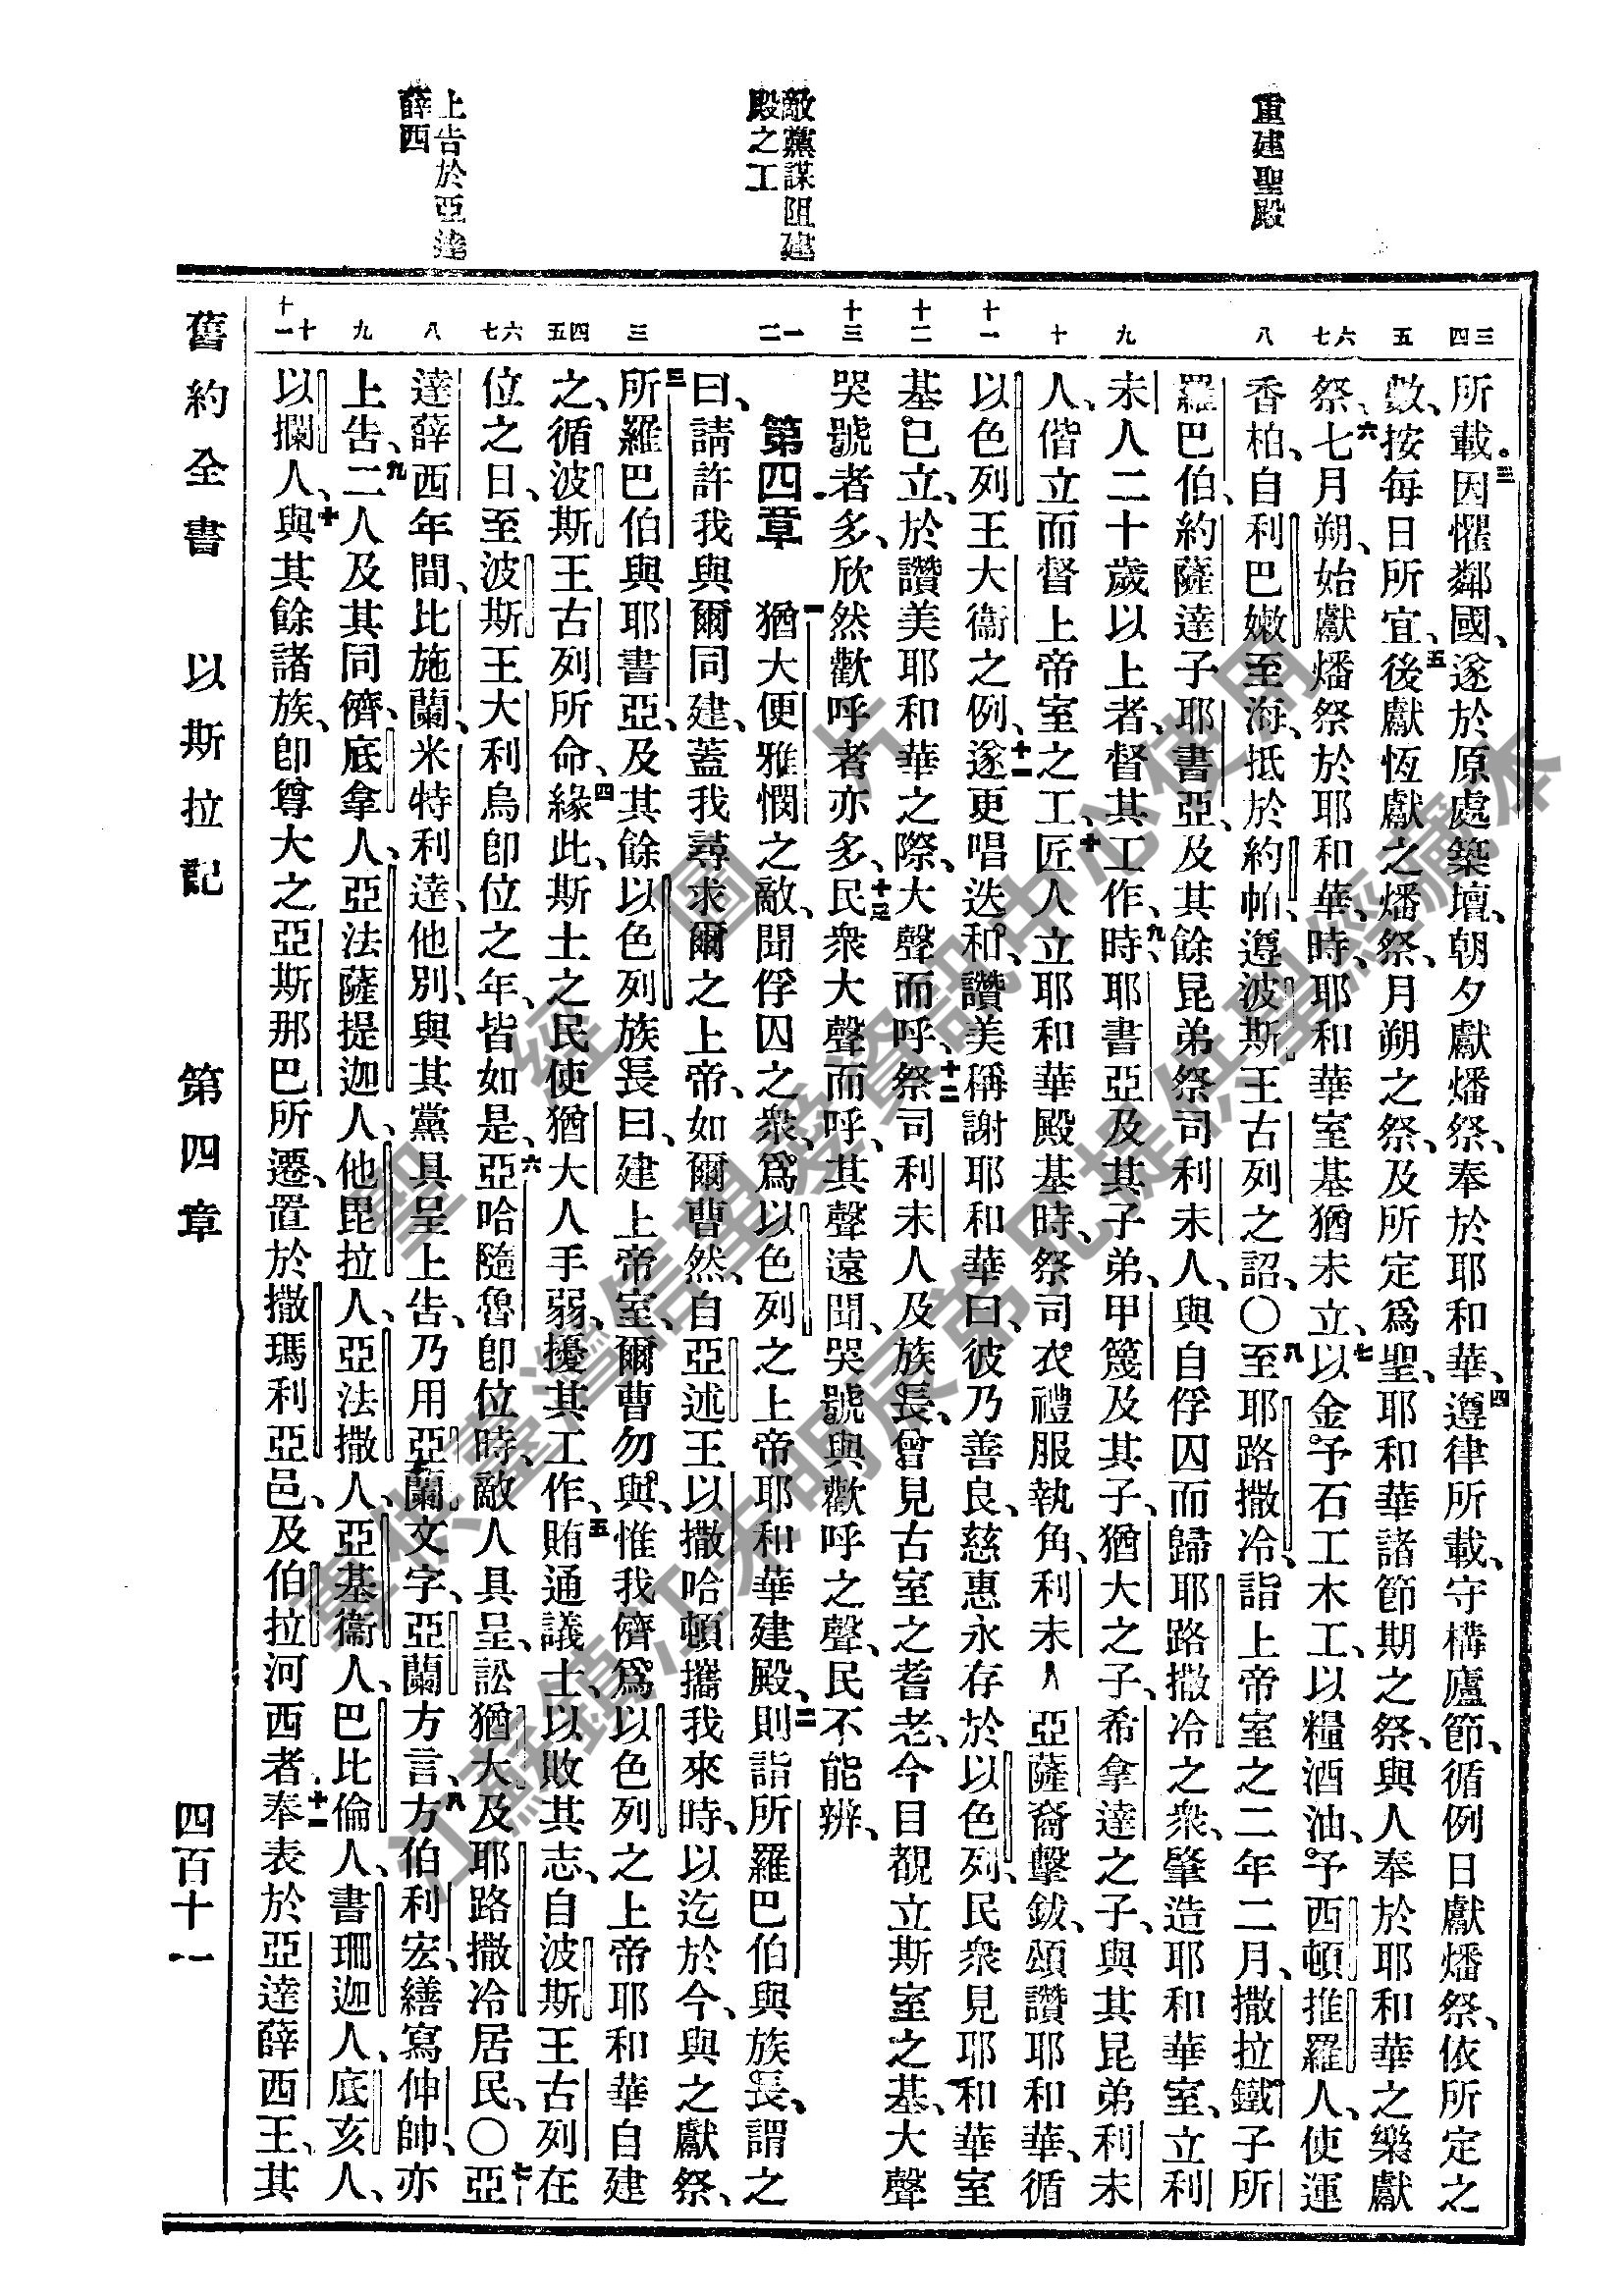 重建聖殿
敵黨謀阻建
殿之工
上告於亞達
薛西
三四
五
六七
八
九
十
十一
十二
十三
一二
三
四五
六七
八
九
十十一
所載、三因懼鄰國、遂於原處築壇、朝夕獻燔祭、奉於耶和華、四遵律所載、守構廬節、循例日獻燔祭、依所定之
數、按每日所宜、五後獻恆獻之燔祭、月朔之祭、及所定爲聖、耶和華諸節期之祭、與人奉於耶和華之樂獻
祭、六七月朔、始獻燔祭於耶和華、時、耶和華室基猶未立、七以金予石工木工、以糧酒油、予西頓推羅人、使運
香柏、自利巴嫩至海、抵於約帕、遵波斯王古列之詔、○八至耶路撒冷、詣上帝室之二年二月、撒拉鐵子所
羅巴伯、約薩達子耶書亞、及其餘昆弟祭司利未人、與自俘囚而歸耶路撒冷之衆、肇造耶和華室、立利
未人二十歲以上者、督其工作、九時、耶書亞及其子弟、甲篾及其子、猶大之子、希拿達之子、與其昆弟利未
人、偕立而督上帝室之工、十匠人立耶和華殿基時、祭司衣禮服執角、利未人亞薩裔擊鈸、頌讚耶和華、循
以色列王大衞之例、十一遂更唱迭和、讚美稱謝耶和華曰、彼乃善良、慈惠永存於以色列、民衆見耶和華室
基已立、於讚美耶和華之際、大聲而呼、十二祭司利未人及族長、曾見古室之耆老、今目覩立斯室之基、大聲
哭號者多、欣然歡呼者亦多、十三民衆大聲而呼、其聲遠聞、哭號與歡呼之聲、民不能辨、
第四章 一猶大便雅憫之敵、聞俘囚之衆、爲以色列之上帝耶和華建殿、二則詣所羅巴伯與族長、謂之
曰、請許我與爾同建、蓋我尋求爾之上帝、如爾曹然、自亞述王以撒哈頓攜我來時、以迄於今、與之獻祭、
三所羅巴伯與耶書亞、及其餘以色列族長曰、建上帝室、爾曹勿與、惟我儕爲以色列之上帝耶和華自建
之、循波斯王古列所命、四緣此、斯土之民使猶大人手弱、擾其工作、五賄通議士、以敗其志、自波斯王古列在
位之日、至波斯王大利烏卽位之年、皆如是、六亞哈隨魯卽位時、敵人具呈、訟猶大及耶路撒冷居民、○七亞
達薛西年間、比施蘭、米特利達、他別、與其黨具呈上告、乃用亞蘭文字、亞蘭方言、八方伯利宏、繕寫伸帥、亦
上告、九二人及其同儕、底拿人、亞法薩提迦人、他毘拉人、亞法撒人、亞基衞人、巴比倫人、書珊迦人、底亥人、
以攔人、十與其餘諸族、卽尊大之亞斯那巴所遷、置於撒瑪利亞邑、及伯拉河西者、十一奉表於亞達薛西王、其
舊約全書 以斯拉記 第四章 四百十一
聖經圖片
專供臺灣信望愛資訊中心使用
江蘇鎮江朱明辰弟兄提供聖經藏本